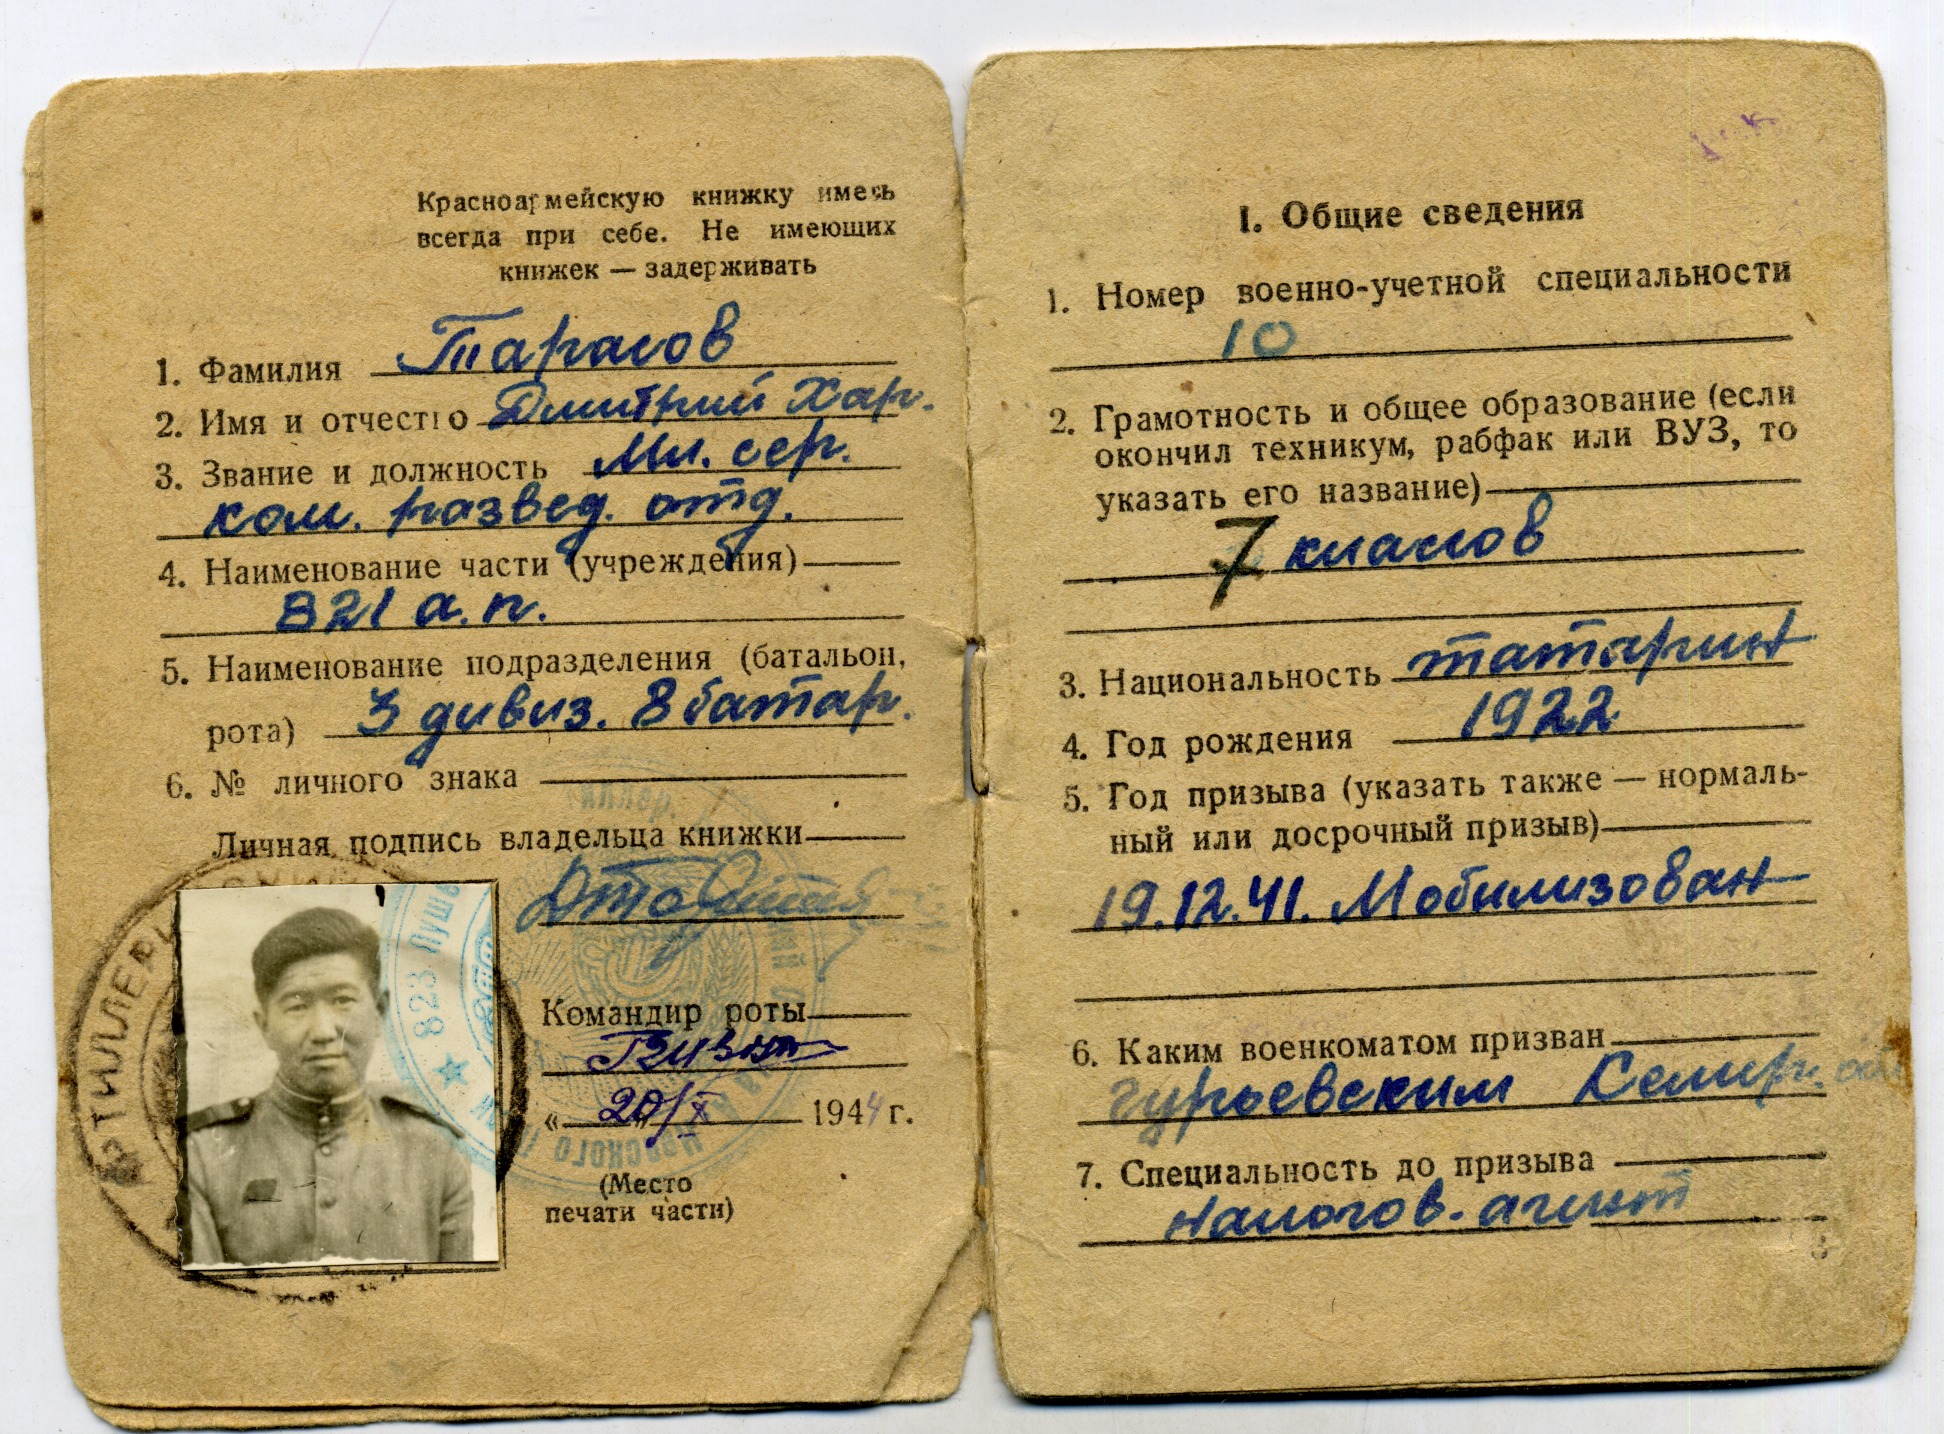 Красноармейскую книжку иметь
всегда при себе. Не имеющих
книжек — задерживать
1. Фамилия Тарасов
2. Имя и отчество Дмитрий Хар.
3. Звание и должность Мл. сер.
ком. развед. отд.
4. Наименование части (учреждения)
821 а.п.
5. Наименование подразделения (батальон,
рота) 3 дивиз. 8 батар.
6. № личного знака
Личная подпись владельца книжки
Командир роты
"20/X 1944 г.
(Место
печати части)
823 Пушеч
АРТИЛЛЕРИ
I. Общие сведения
1. Номер военно-учетной специальности
10
2. Грамотность и общее образование (если
окончил техникум, рабфак или ВУЗ, то
указать его название)
7 класов
3. Национальность татарин
4. Год рождения 1922
5. Год призыва (указать также — нормаль-
ный или досрочный призыв)
19.12.41. Мобилизован
6. Каким военкоматом призван
Гурьевским Кемер. обл
7. Специальность до призыва
налогов. агент
3